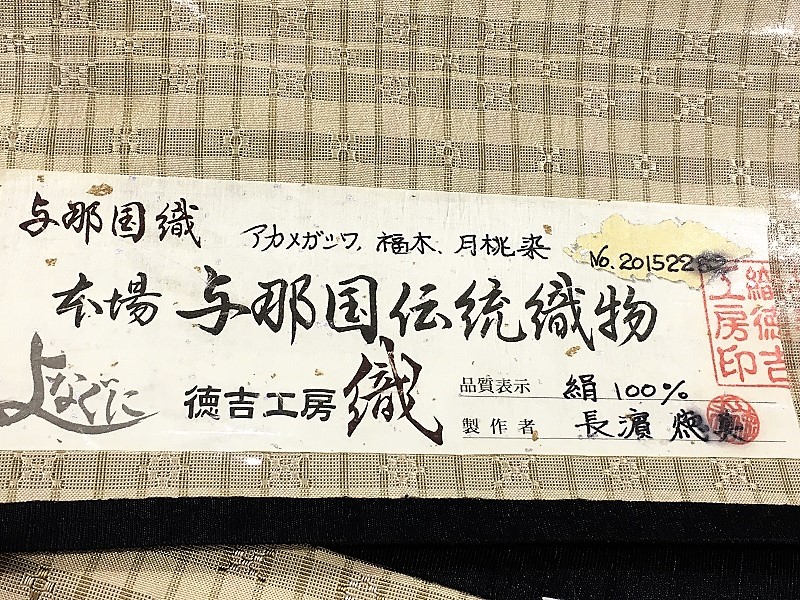 与那国織
アカメガシワ、福木、月桃染
No. 201522
本場 与那国伝統織物
よなぐに
徳吉工房 織
品質表示 絹 100%
製作者 長濱
徳吉
工房印